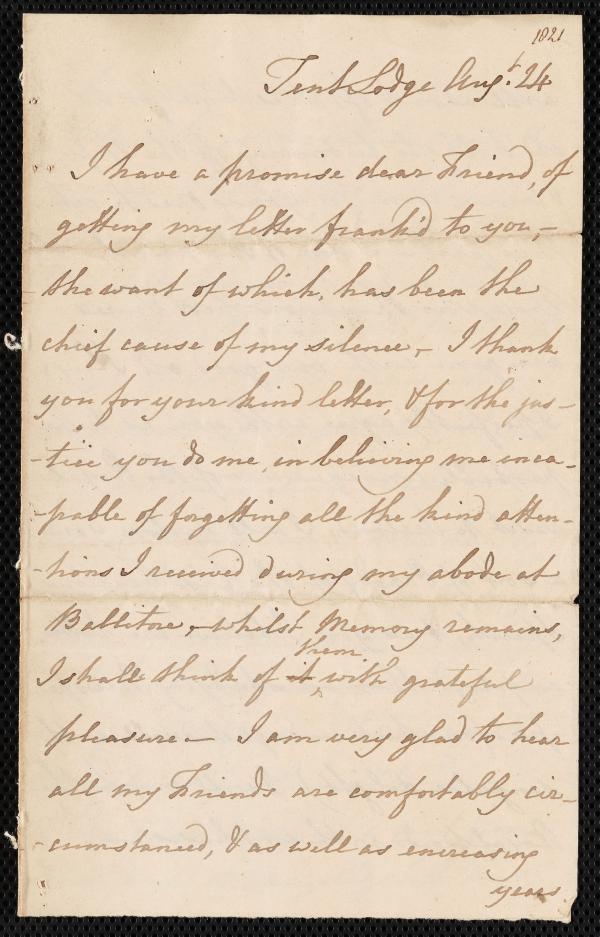 1821
Tent Lodge Augt. 24
I have a promise dear Friend, of
getting my letter frank'd to you, –
the want of which, has been the
chief cause of my silence, – I thank
you for your kind letter, & for the jus-
-tice you do me, in believing me inca-
-pable of forgetting all the kind atten-
-tions I received during my abode at
Ballitore, – whilst Memory remains,
them
I shall think of it with grateful
pleasure – I am very glad to hear
all my Friends are comfortably cir-
-cumstanced, & as well as encreasing
years